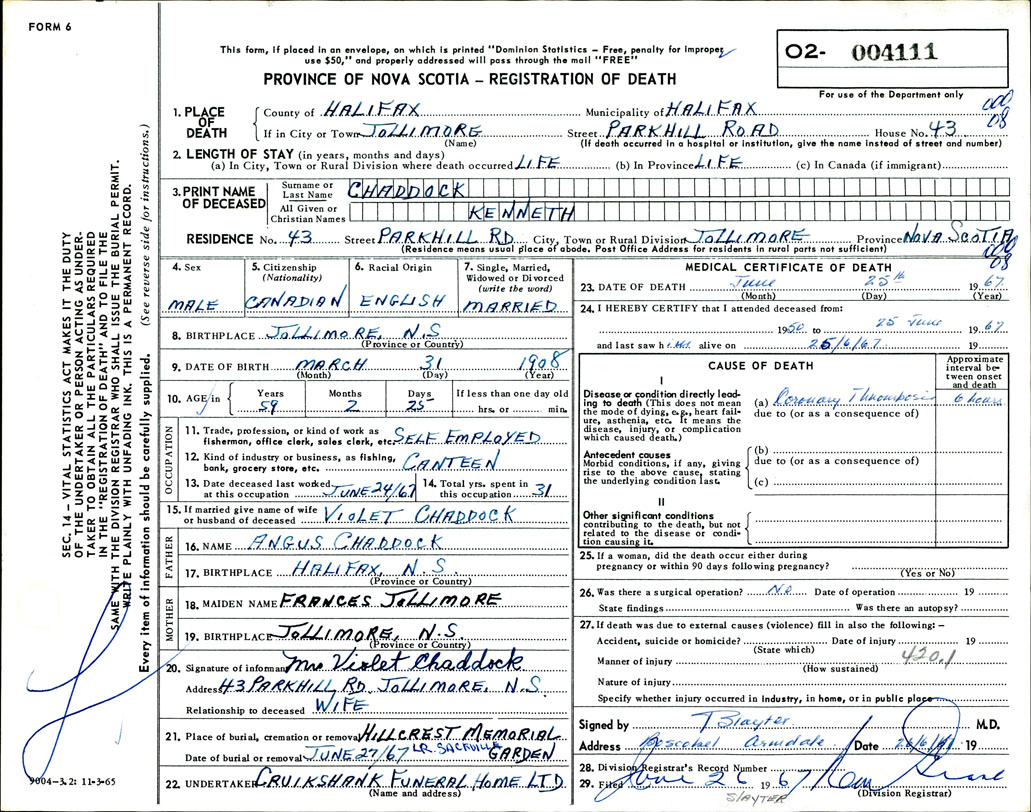 FORM 6
This form, if placed in an envelope, on which is printed "Dominion Statistics – Free, penalty for improper
use $50," and properly addressed will pass through the mail "FREE"
O2- 004111
PROVINCE OF NOVA SCOTIA – REGISTRATION OF DEATH
For use of the Department only
000
08
1. PLACE OF DEATH
County of HALIFAX Municipality of HALIFAX
If in City or Town JOLLIMORE Street PARKHILL ROAD House No. 43
(Name) (If death occurred in a hospital or institution, give the name instead of street and number)
2. LENGTH OF STAY (in years, months and days)
(a) In City, Town or Rural Division where death occurred LIFE (b) In Province LIFE (c) In Canada (if immigrant)
3. PRINT NAME OF DECEASED
Surname or Last Name CHADDOCK
All Given or Christian Names KENNETH
RESIDENCE No. 43 Street PARKHILL RD City, Town or Rural Division JOLLIMORE Province NOVA SCOTIA
(Residence means usual place of abode. Post Office Address for residents in rural parts not sufficient)
000
08
4. Sex MALE
5. Citizenship (Nationality) CANADIAN
6. Racial Origin ENGLISH
7. Single, Married, Widowed or Divorced (write the word) MARRIED
8. BIRTHPLACE JOLLIMORE, N.S.
(Province or Country)
9. DATE OF BIRTH MARCH 31 1908
(Month) (Day) (Year)
10. AGE in Years 59 Months 2 Days 25 If less than one day old hrs. or min.
OCCUPATION
11. Trade, profession, or kind of work as fisherman, office clerk, sales clerk, etc. SELF EMPLOYED
12. Kind of industry or business, as fishing, bank, grocery store, etc. CANTEEN
13. Date deceased last worked at this occupation JUNE 24/67
14. Total yrs. spent in this occupation 31
15. If married give name of wife or husband of deceased VIOLET CHADDOCK
FATHER
16. NAME ANGUS CHADDOCK
17. BIRTHPLACE HALIFAX, N.S.
(Province or Country)
MOTHER
18. MAIDEN NAME FRANCES JOLLIMORE
19. BIRTHPLACE JOLLIMORE, N.S.
(Province or Country)
20. Signature of informant Mrs Violet Chaddock
Address 43 PARKHILL RD. JOLLIMORE, N.S.
Relationship to deceased WIFE
21. Place of burial, cremation or removal HILLCREST MEMORIAL GARDEN
LR. SACKVILLE
Date of burial or removal JUNE 27/67
22. UNDERTAKER CRUIKSHANK FUNERAL HOME LTD
(Name and address)
MEDICAL CERTIFICATE OF DEATH
23. DATE OF DEATH June 25th 1967
(Month) (Day) (Year)
24. I HEREBY CERTIFY that I attended deceased from:
1950 to 25 June 1967
and last saw him alive on 25/6/67 19
CAUSE OF DEATH
Approximate interval between onset and death
I
Disease or condition directly leading to death (This does not mean the mode of dying, e.g., heart failure, asthenia, etc. It means the disease, injury, or complication which caused death.)
(a) Coronary Thrombosis 6 hours
due to (or as a consequence of)
Antecedent causes
Morbid conditions, if any, giving rise to the above cause, stating the underlying condition last.
(b)
due to (or as a consequence of)
(c)
II
Other significant conditions
contributing to the death, but not related to the disease or condition causing it.
25. If a woman, did the death occur either during
pregnancy or within 90 days following pregnancy?
(Yes or No)
26. Was there a surgical operation? No Date of operation 19
State findings Was there an autopsy?
27. If death was due to external causes (violence) fill in also the following: –
Accident, suicide or homicide? Date of injury 19
(State which)
420.1
Manner of injury
(How sustained)
Nature of injury
Specify whether injury occurred in industry, in home, or in public place
Signed by T Slayter M.D.
Address Armdale Date 26/6/67 19
28. Division Registrar's Record Number
29. Filed June 26 1967
SLAYTER
(Division Registrar)
SEC. 14 – VITAL STATISTICS ACT MAKES IT THE DUTY
OF THE UNDERTAKER OR PERSON ACTING AS UNDER-
TAKER TO OBTAIN ALL THE PARTICULARS REQUIRED
IN THE "REGISTRATION OF DEATH" AND TO FILE THE
SAME WITH THE DIVISION REGISTRAR WHO SHALL ISSUE THE BURIAL PERMIT.
WRITE PLAINLY WITH UNFADING INK. THIS IS A PERMANENT RECORD.
Every item of information should be carefully supplied. (See reverse side for instructions.)
9004-3.2: 11-3-65